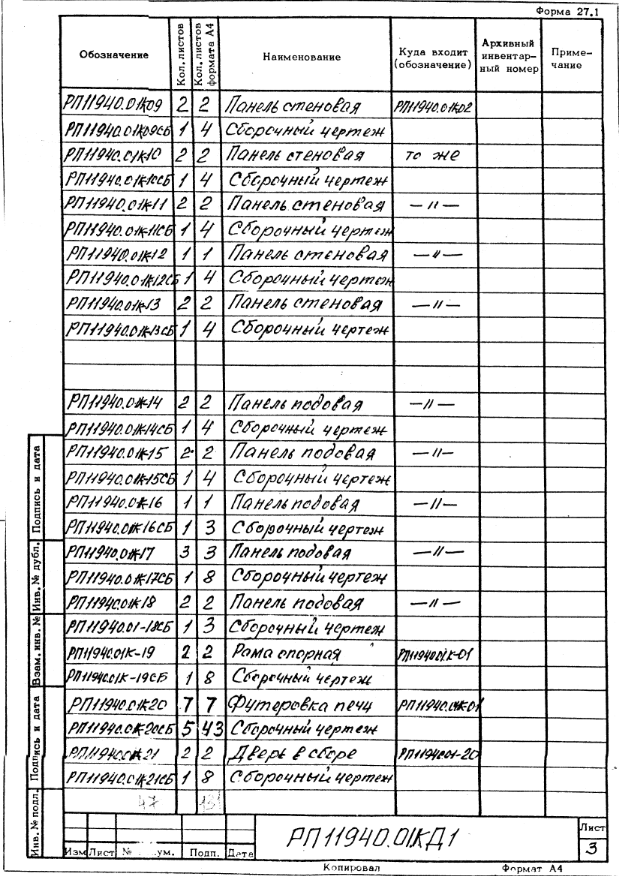 Форма 27.1
Обозначение Кол. листов Кол. листов формата А4 Наименование Куда входит (обозначение) Архивный инвентар- ный номер Приме- чание
РП11940.01К09 2 2 Панель стеновая РП11940.01К02
РП11940.01К09СБ 1 4 Сборочный чертеж
РП11940.01К10 2 2 Панель стеновая то же
РП11940.01К10СБ 1 4 Сборочный чертеж
РП11940.01К11 2 2 Панель стеновая —〃—
РП11940.01К11СБ 1 4 Сборочный чертеж
РП11940.01К12 1 1 Панель стеновая —〃—
РП11940.01К12СБ 1 4 Сборочный чертеж
РП11940.01К13 2 2 Панель стеновая —〃—
РП11940.01К13СБ 1 4 Сборочный чертеж
РП11940.01К14 2 2 Панель подовая —〃—
РП11940.01К14СБ 1 4 Сборочный чертеж
РП11940.01К15 2 2 Панель подовая —〃—
РП11940.01К15СБ 1 4 Сборочный чертеж
РП11940.01К16 1 1 Панель подовая —〃—
РП11940.01К16СБ 1 3 Сборочный чертеж
РП11940.01К17 3 3 Панель подовая —〃—
РП11940.01К17СБ 1 8 Сборочный чертеж
РП11940.01К18 2 2 Панель подовая —〃—
РП11940.01-18СБ 1 3 Сборочный чертеж
РП11940.01К-19 2 2 Рама опорная РП11940.01К-01
РП11940.01К-19СБ 1 8 Сборочный чертеж
РП11940.01К20 7 7 Футеровка печи РП11940.01К01
РП11940.01К20СБ 5 43 Сборочный чертеж
РП11940.01К21 2 2 Дверь в сборе РП11940.01-20
РП11940.01К21СБ 1 8 Сборочный чертеж
47 131
Инв. № подл. Подпись и дата Взам. инв. № Инв. № дубл. Подпись и дата
Изм Лист № ум. Подп. Дата
РП11940.01КД1
Лист
3
Копировал Формат А4